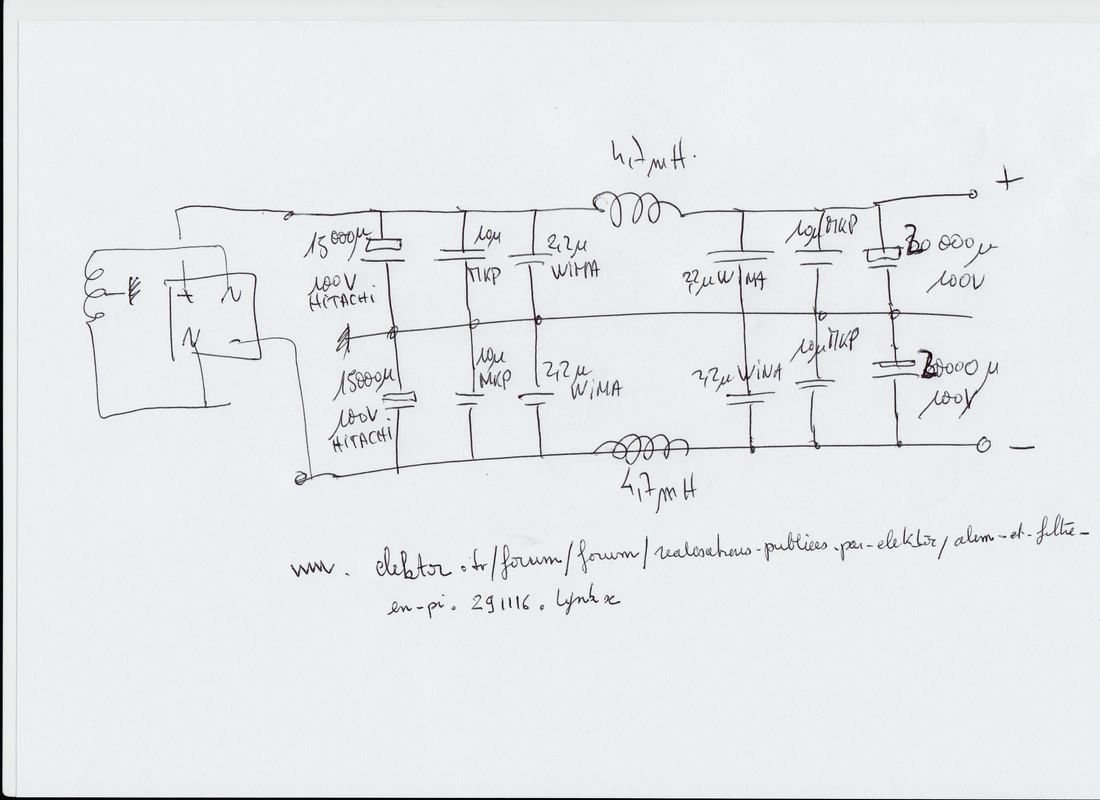 4,7mH.
+
15000µ
100V
HITACHi
10µ
MKP
2,2µ
WiMA
2,2µ WiMA
10µ MKP
30 000µ
100V
+ ~
~ -
15000µ
100V
HITACHi
10µ
MKP
2,2µ
WiMA
2,2µ WiMA
10µ MKP
30000µ
100V
-
4,7mH
www. elektor.fr/forum/forum/realisations-publiees-par-elektor/alim-et-filtre-
en-pi. 291116. lynkx